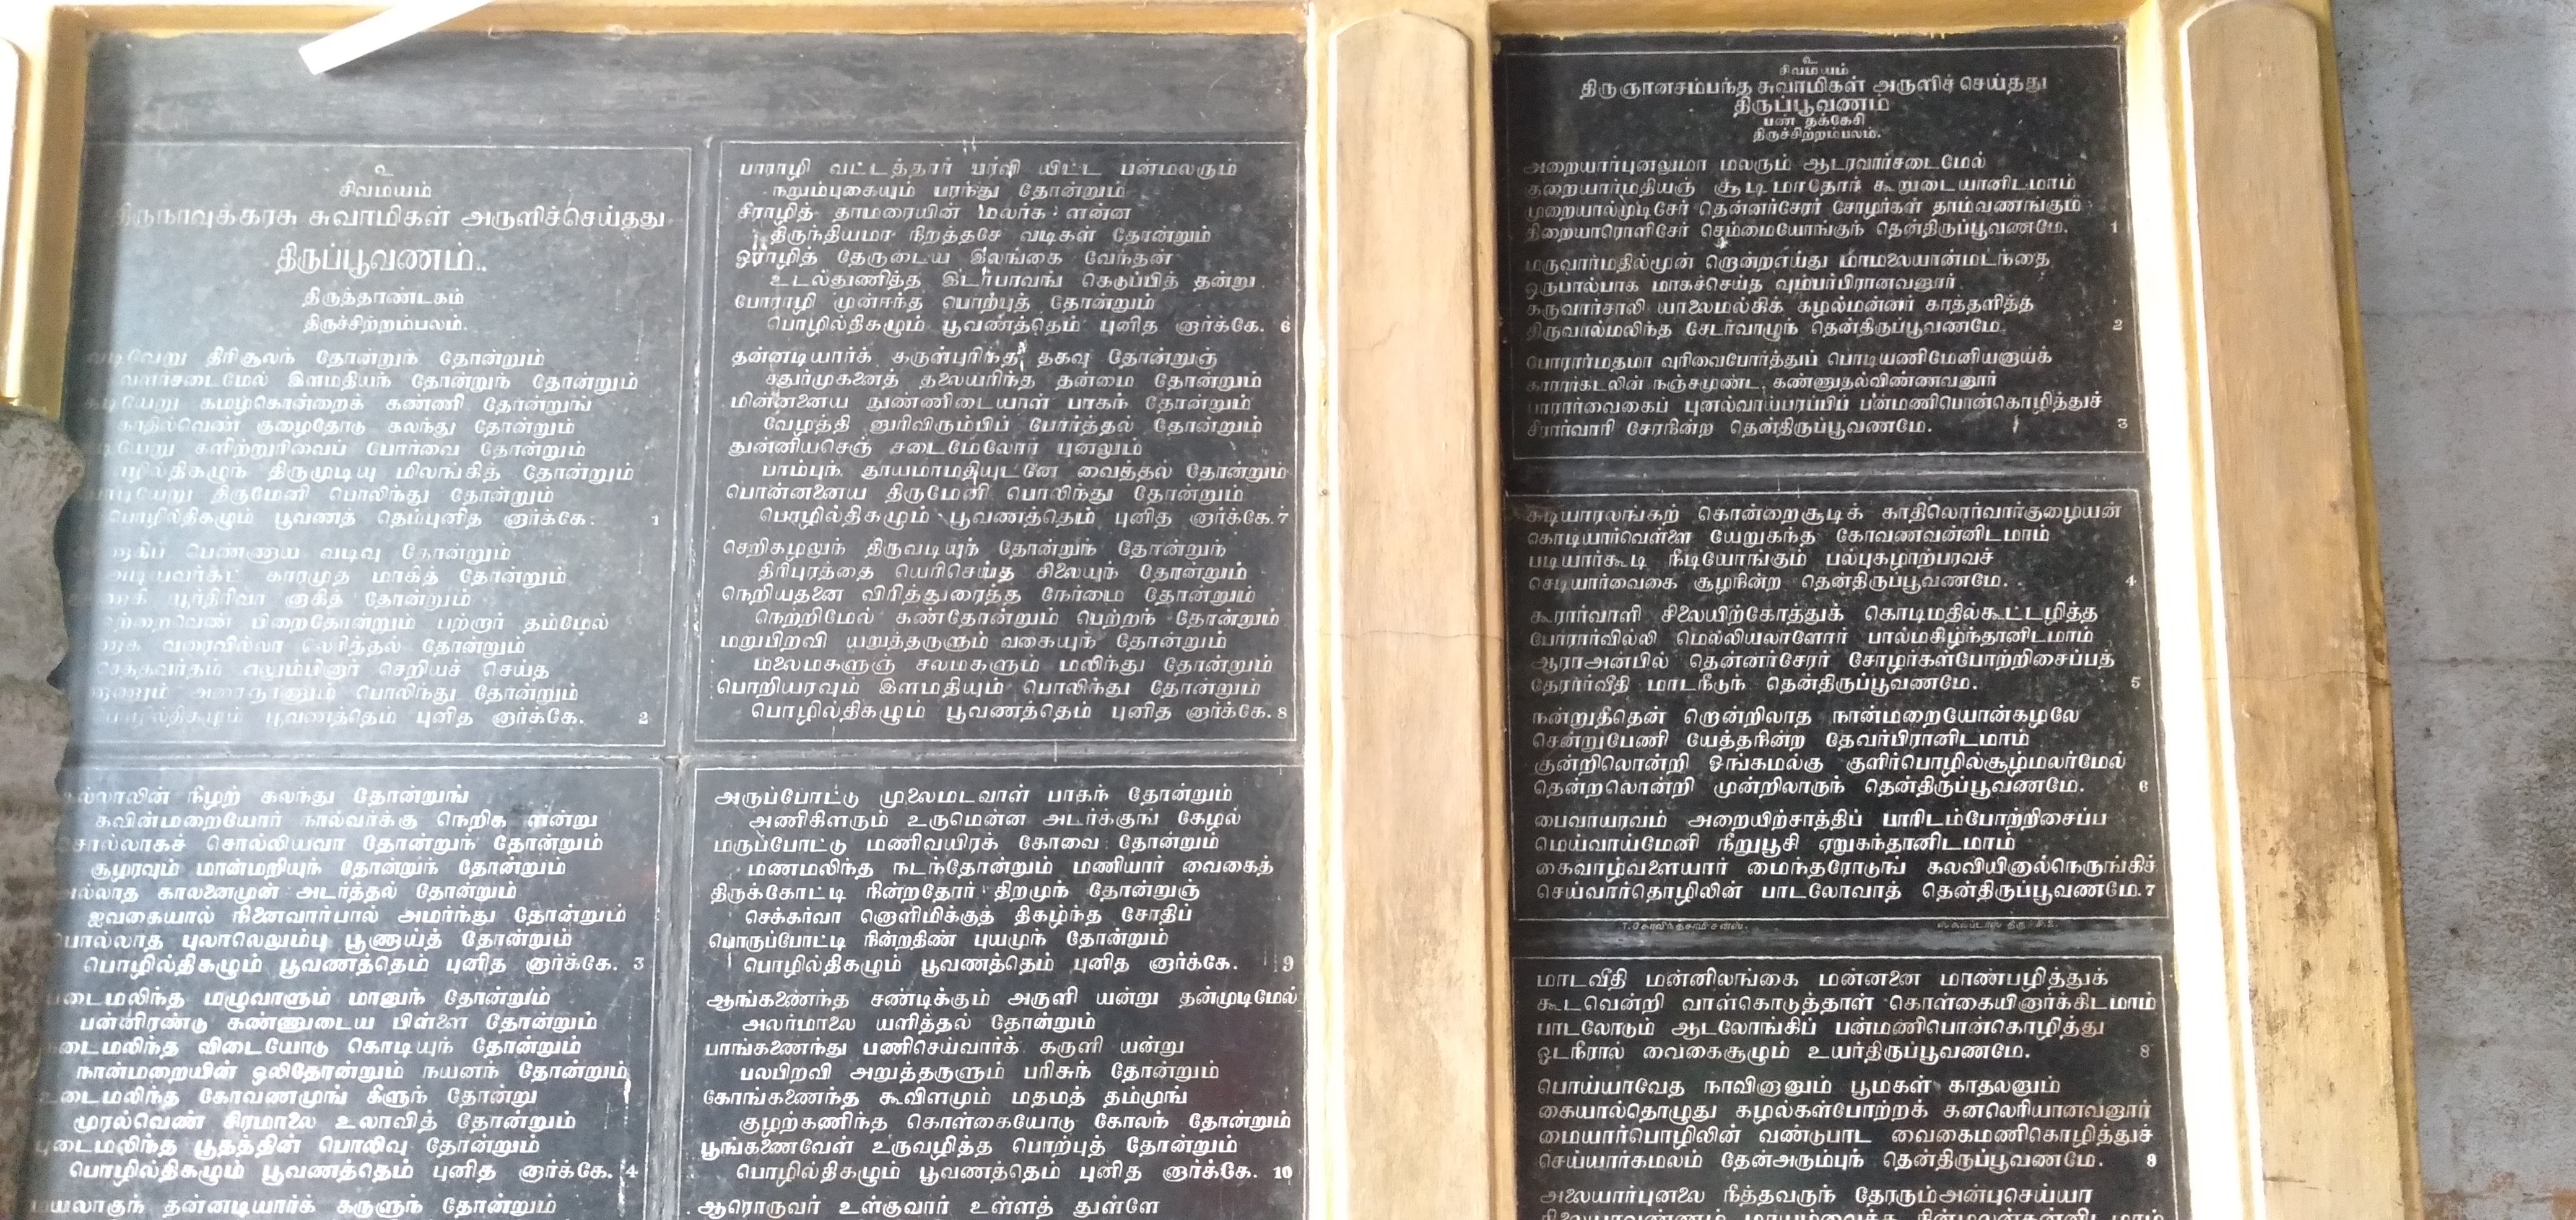 உ
சிவமயம்
திருநாவுக்கரசு சுவாமிகள் அருளிச்செய்தது
திருப்பூவணம்..
திருத்தாண்டகம்
திருச்சிற்றம்பலம்.
வடிவேறு திரிசூலந் தோன்றுந் தோன்றும்
வளர்சடைமேல் இளமதியந் தோன்றுந் தோன்றும்
கடியேறு கமழ்கொன்றைக் கண்ணி தோன்றுங்
காதில்வெண் குழைதோடு கலந்து தோன்றும்
யேறு களிற்றுரிவைப் போர்வை தோன்றும்
எழில்திகழுந் திருமுடியு மிலங்கித் தோன்றும்
யேறு திருமேனி பொலிந்து தோன்றும்
பொழில்திகழும் பூவணத் தெம்புனித னார்க்கே. 1
பெண்ணாய வடிவு தோன்றும்
அடியவர்கட் காரமுத மாகித் தோன்றும்
யூர்திரிவா னாகித் தோன்றும்
ஒற்றைவெண் பிறைதோன்றும் பற்றார் தம்மேல்
வரைவில்லா லெரித்தல் தோன்றும்
செத்தவர்தம் எலும்பினார் செறியச் செய்த
அரைஞாணும் பொலிந்து தோன்றும்
பொழில்திகழும் பூவணத்தெம் புனித னார்க்கே. 2
கல்லாலின் நீழற் கலந்து தோன்றுங்
கவின்மறையோர் நால்வர்க்கு நெறிக ளன்று
சொல்லாகச் சொல்லியவா தோன்றுந் தோன்றும்
சூழரவும் மான்மறியுந் தோன்றுந் தோன்றும்
அல்லாத காலனைமுன் அடர்த்தல் தோன்றும்
ஐவகையால் நினைவார்பால் அமர்ந்து தோன்றும்
பொல்லாத புலாலெலும்பு பூணாய்த் தோன்றும்
பொழில்திகழும் பூவணத்தெம் புனித னார்க்கே. 3
படைமலிந்த மழுவாளும் மானுந் தோன்றும்
பன்னிரண்டு கண்ணுடைய பிள்ளை தோன்றும்
நடைமலிந்த விடையோடு கொடியுந் தோன்றும்
நான்மறையின் ஒலிதோன்றும் நயனந் தோன்றும்
உடைமலிந்த கோவணமுங் கீளுந் தோன்று
மூரல்வெண் சிரமாலை உலாவித் தோன்றும்
புடைமலிந்த பூதத்தின் பொலிவு தோன்றும்
பொழில்திகழும் பூவணத்தெம் புனித னார்க்கே. 4
மயலாகுந் தன்னடியார்க் கருளுந் தோன்றும்
பாராழி வட்டத்தார் பரவி யிட்ட பன்மலரும்
நறும்புகையும் பரந்து தோன்றும்
சீராழித் தாமரையின் மலர்க ளன்ன
திருந்தியமா நிறத்தசே வடிகள் தோன்றும்
ஓராழித் தேருடைய இலங்கை வேந்தன்
உடல்துணித்த இடர்பாவங் கெடுப்பித் தன்று
போராழி முன்ஈந்த பொற்புத் தோன்றும்
பொழில்திகழும் பூவணத்தெம் புனித னார்க்கே. 6
தன்னடியார்க் கருள்புரிந்த தகவு தோன்றுஞ்
சதுர்முகனைத் தலையரிந்த தன்மை தோன்றும்
மின்னனைய நுண்ணிடையாள் பாகந் தோன்றும்
வேழத்தி னுரிவிரும்பிப் போர்த்தல் தோன்றும்
துன்னியசெஞ் சடைமேலோர் புனலும்
பாம்புந் தூயமாமதியுடனே வைத்தல் தோன்றும்
பொன்னனைய திருமேனி பொலிந்து தோன்றும்
பொழில்திகழும் பூவணத்தெம் புனித னார்க்கே. 7
செறிகழலுந் திருவடியுந் தோன்றுந் தோன்றுந்
திரிபுரத்தை யெரிசெய்த சிலையுந் தோன்றும்
நெறியதனை விரித்துரைத்த நேர்மை தோன்றும்
நெற்றிமேல் கண்தோன்றும் பெற்றந் தோன்றும்
மறுபிறவி யறுத்தருளும் வகையுந் தோன்றும்
மலைமகளுஞ் சலமகளும் மலிந்து தோன்றும்
பொறியரவும் இளமதியும் பொலிந்து தோன்றும்
பொழில்திகழும் பூவணத்தெம் புனித னார்க்கே. 8
அருப்போட்டு முலைமடவாள் பாகந் தோன்றும்
அணிகிளரும் உருமென்ன அடர்க்குங் கேழல்
மருப்போட்டு மணிவயிரக் கோவை தோன்றும்
மணமலிந்த நடந்தோன்றும் மணியார் வைகைத்
திருக்கோட்டி நின்றதோர் திறமுந் தோன்றுஞ்
செக்கர்வா னொளிமிக்குத் திகழ்ந்த சோதிப்
பொருப்போட்டி நின்றதிண் புயமுந் தோன்றும்
பொழில்திகழும் பூவணத்தெம் புனித னார்க்கே. 9
ஆங்கணைந்த சண்டிக்கும் அருளி யன்று தன்முடிமேல்
அலர்மாலை யளித்தல் தோன்றும்
பாங்கணைந்து பணிசெய்வார்க் கருளி யன்று
பலபிறவி அறுத்தருளும் பரிசுந் தோன்றும்
கோங்கணைந்த கூவிளமும் மதமத் தம்முங்
குழற்கணிந்த கொள்கையோடு கோலந் தோன்றும்
பூங்கணைவேள் உருவழித்த பொற்புத் தோன்றும்
பொழில்திகழும் பூவணத்தெம் புனித னார்க்கே. 10
ஆரொருவர் உள்குவார் உள்ளத் துள்ளே
உ
சிவமயம்
திருஞானசம்பந்த சுவாமிகள் அருளிச் செய்தது
திருப்பூவணம்
பண் தக்கேசி
திருச்சிற்றம்பலம்.
அறையார்புனலுமா மலரும் ஆடரவார்சடைமேல்
குறையார்மதியஞ் சூடி மாதோர் கூறுடையானிடமாம்
முறையால்முடிசேர் தென்னர்சேரர் சோழர்கள் தாம்வணங்கும்
திறையாரொளிசேர் செம்மையோங்குந் தென்திருப்பூவணமே. 1
மருவார்மதில்மூன் றொன்றஎய்து மாமலையான்மடந்தை
ஒருபால்பாக மாகச்செய்த வும்பர்பிரானவனூர்
கருவார்சாலி யாலைமல்கிக் கழல்மன்னர் காத்தளித்த
திருவால்மலிந்த சேடர்வாழுந் தென்திருப்பூவணமே. 2
போரார்மதமா வுரிவைபோர்த்துப் பொடியணிமேனியனாய்க்
காரார்கடலின் நஞ்சமுண்ட கண்ணுதல்விண்ணவனூர்
பாரார்வைகைப் புனல்வாய்பரப்பிப் பன்மணிபொன்கொழித்துச்
சீரார்வாரி சேரநின்ற தென்திருப்பூவணமே. 3
கடியாரலங்கற் கொன்றைசூடிக் காதிலொர்வார்குழையன்
கொடியார்வெள்ளை யேறுகந்த கோவணவன்னிடமாம்
படியார்கூடி நீடியோங்கும் பல்புகழாற்பரவச்
செடியார்வைகை சூழநின்ற தென்திருப்பூவணமே. 4
கூரார்வாளி சிலையிற்கோத்துக் கொடிமதில்கூட்டழித்த
போரார்வில்லி மெல்லியலாளோர் பால்மகிழ்ந்தானிடமாம்
ஆராஅன்பில் தென்னர்சேரர் சோழர்கள்போற்றிசைப்பத்
தேரார்வீதி மாடநீடுந் தென்திருப்பூவணமே. 5
நன்றுதீதென் றொன்றிலாத நான்மறையோன்கழலே
சென்றுபேணி யேத்தநின்ற தேவர்பிரானிடமாம்
குன்றிலொன்றி ஓங்கமல்கு குளிர்பொழில்சூழ்மலர்மேல்
தென்றலொன்றி முன்றிலாருந் தென்திருப்பூவணமே. 6
பைவாயரவம் அரையிற்சாத்திப் பாரிடம்போற்றிசைப்ப
மெய்வாய்மேனி நீறுபூசி ஏறுகந்தானிடமாம்
கைவாழ்வளையார் மைந்தரோடுங் கலவியினால்நெருங்கிச்
செய்வார்தொழிலின் பாடலோவாத் தென்திருப்பூவணமே. 7
T. கோவிந்தசாமி சன்ஸ்.
மாடவீதி மன்னிலங்கை மன்னனை மாண்பழித்துக்
கூடவென்றி வாள்கொடுத்தாள் கொள்கையினார்க்கிடமாம்
பாடலோடும் ஆடலோங்கிப் பன்மணிபொன்கொழித்து
ஓடநீரால் வைகைசூழும் உயர்திருப்பூவணமே. 8
பொய்யாவேத நாவினானும் பூமகள் காதலனும்
கையால்தொழுது கழல்கள்போற்றக் கனலெரியானவனூர்
மையார்பொழிலின் வண்டுபாட வைகைமணிகொழித்துச்
செய்யார்கமலம் தேன்அரும்புந் தென்திருப்பூவணமே. 9
அலையார்புனலை நீத்தவருந் தேரரும்அன்புசெய்யா